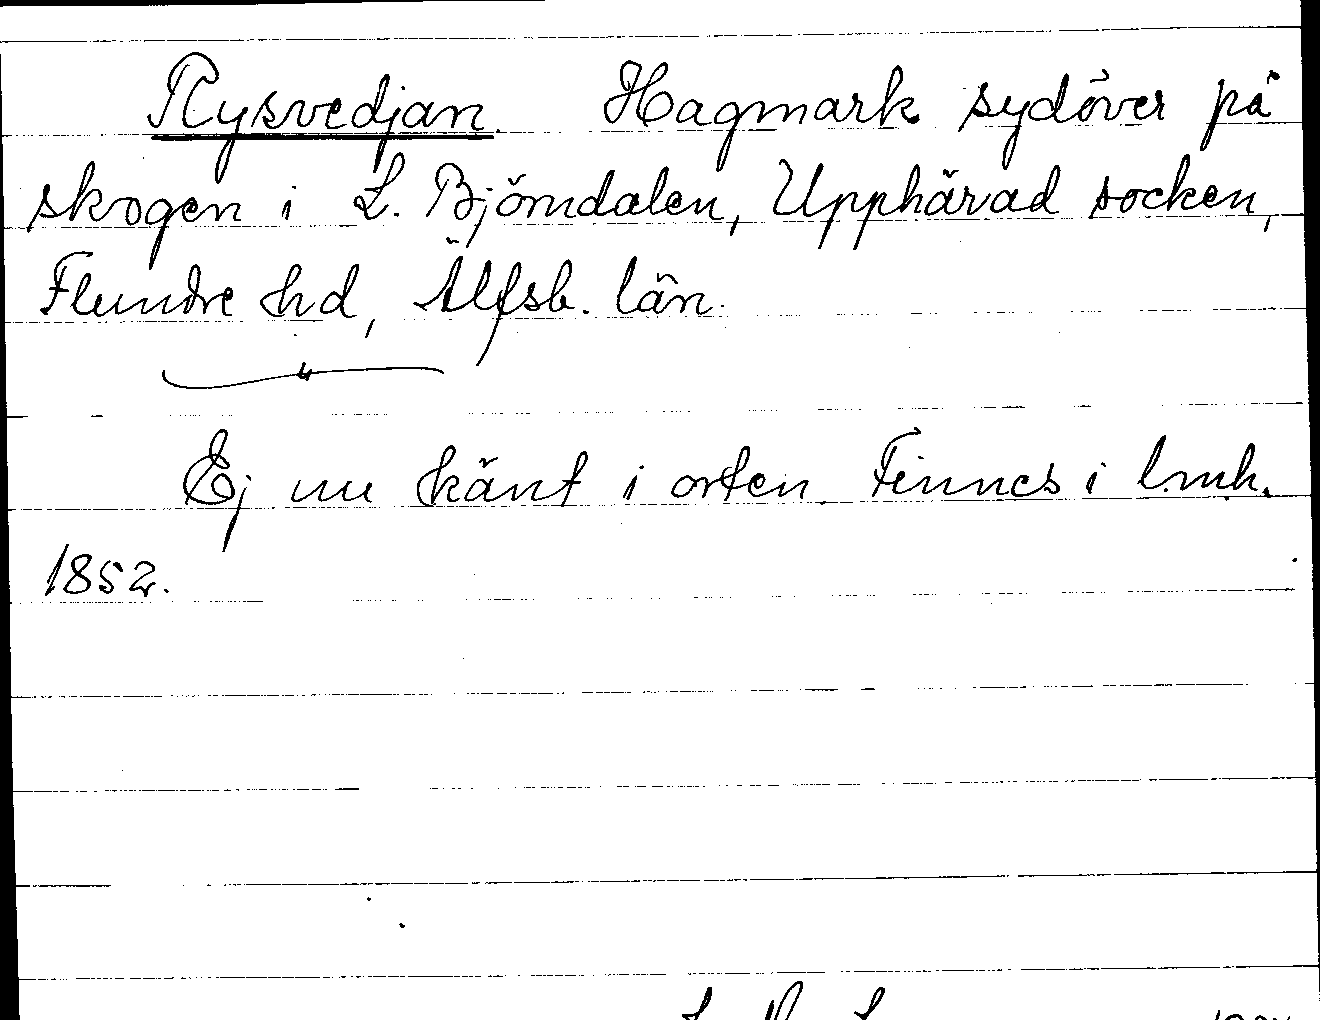 Rysvedjan. Hagmark sydöver på
skogen i L. Björndalen, Upphärad socken,
Flundre hd, Älfsb. län.
Ej nu känt i orten. Finnes i lmh.
1852.